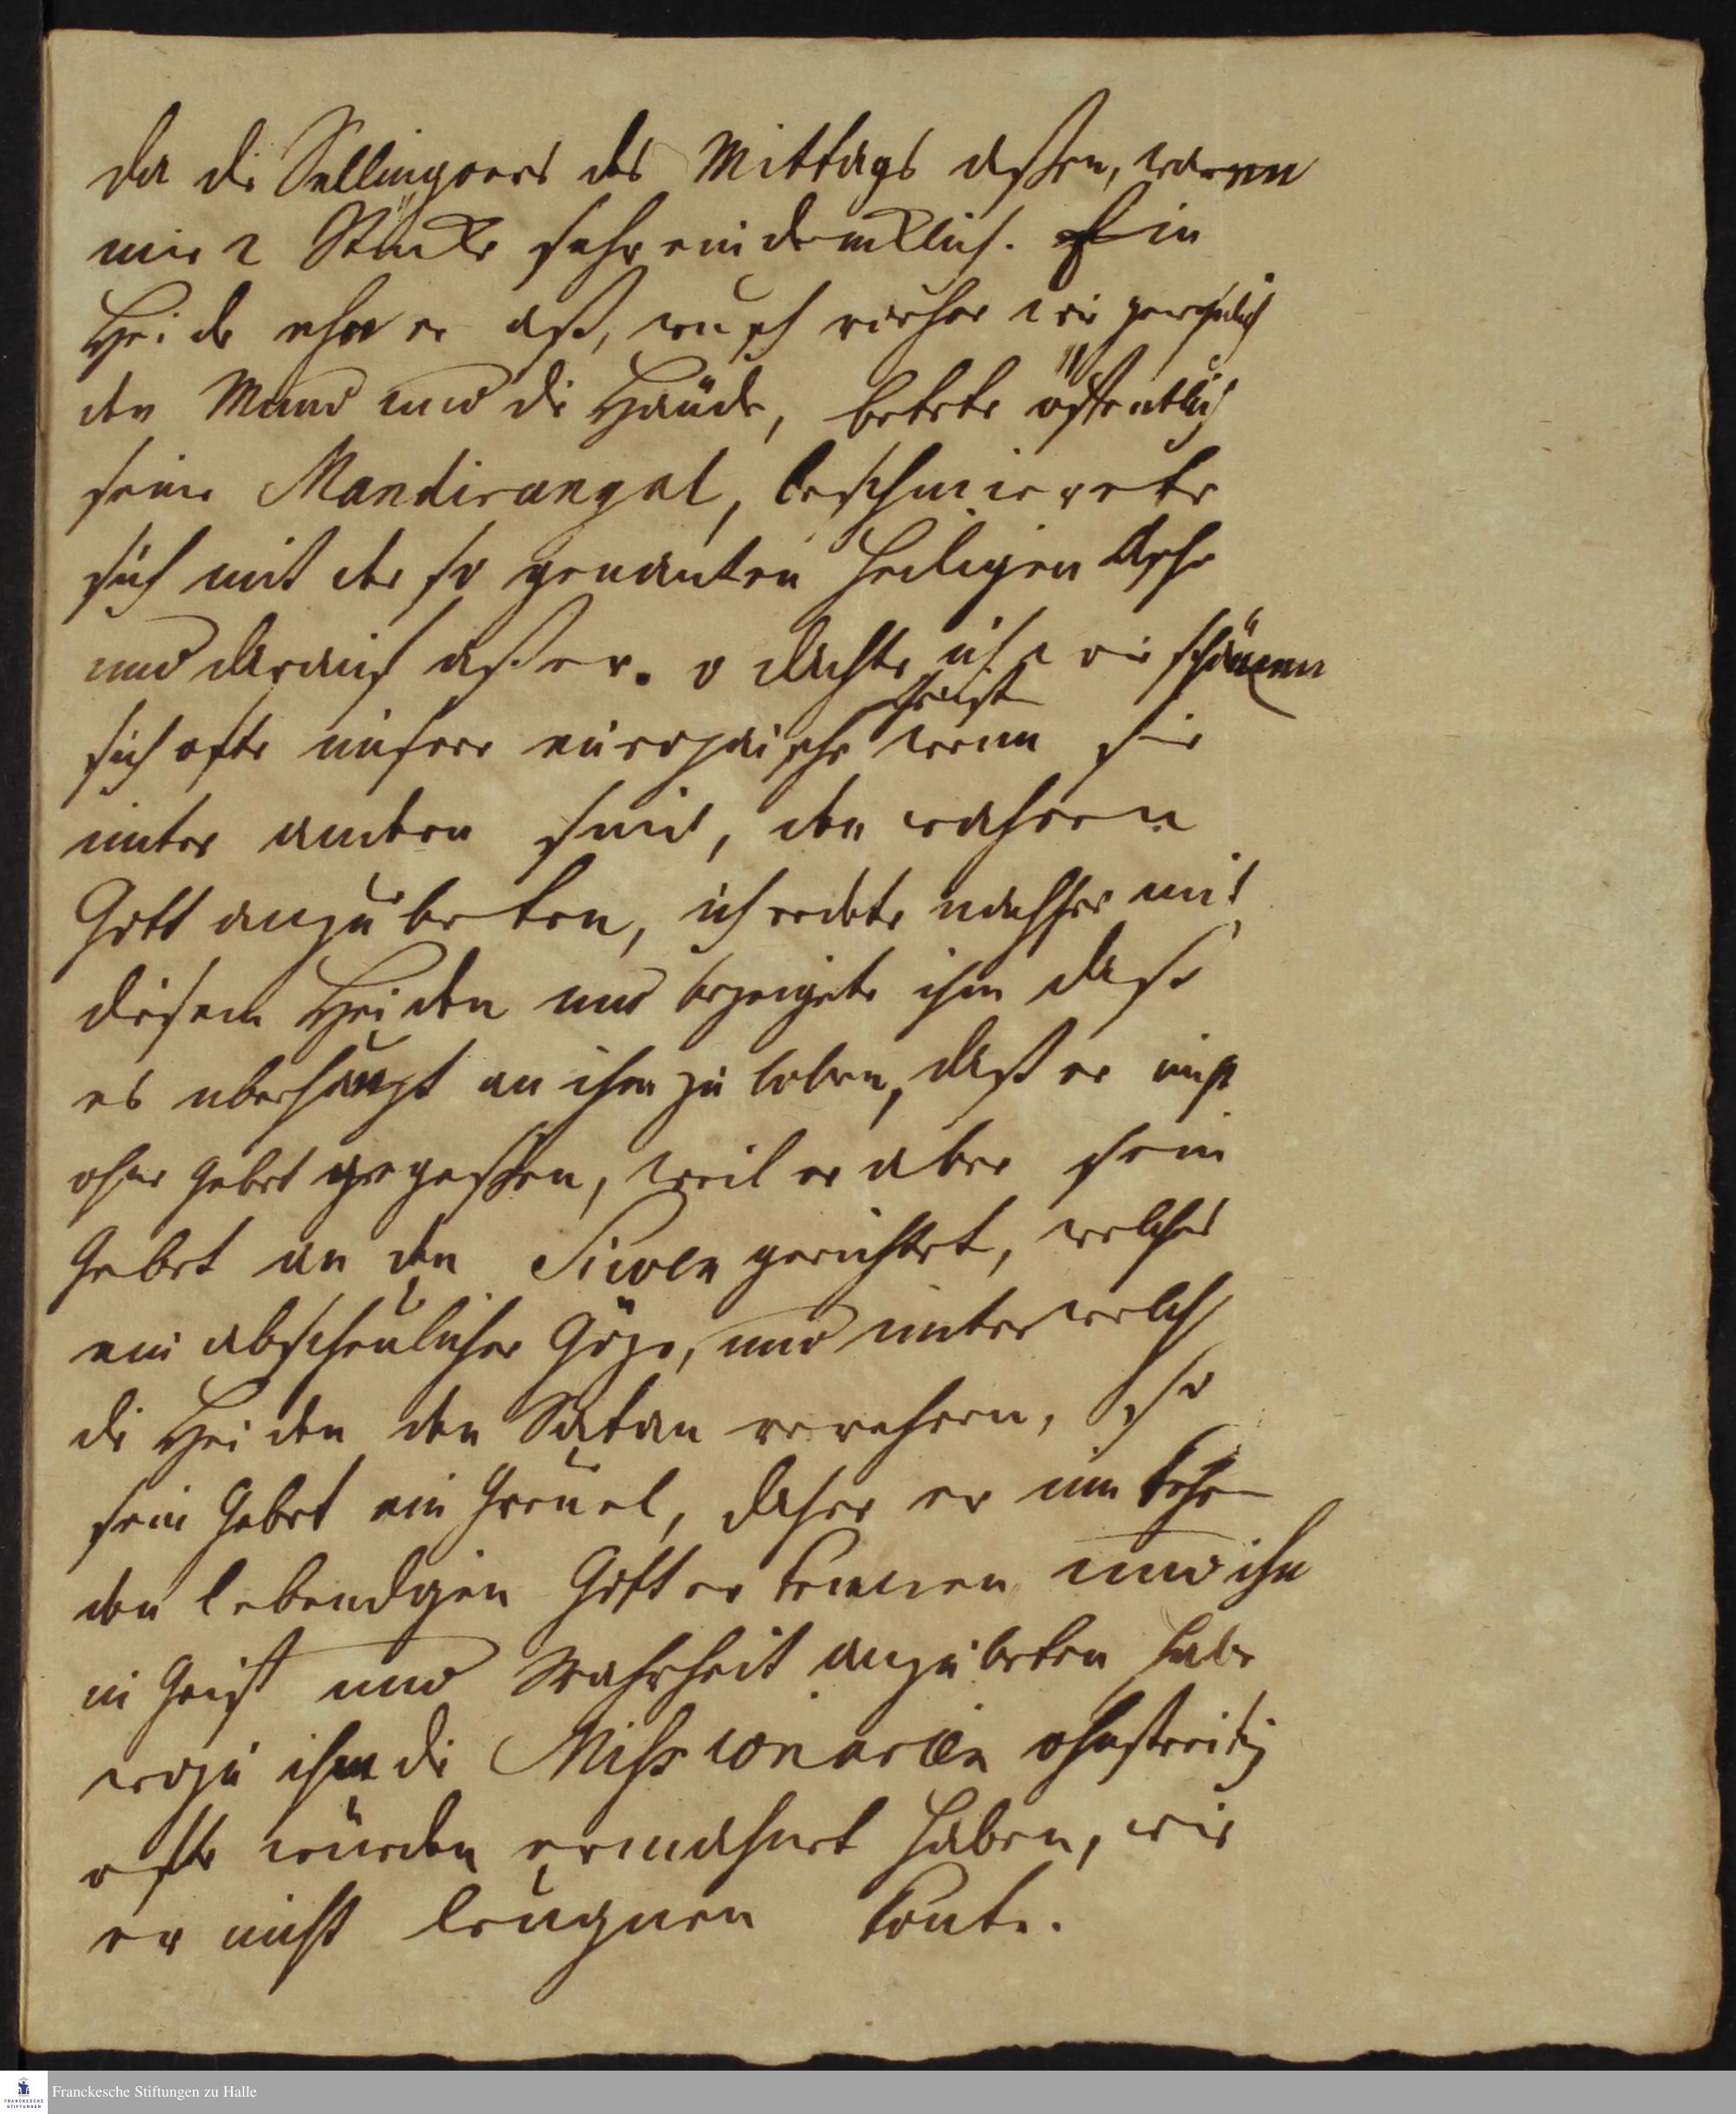 da die Sellingoers des Mittags aßen, waren
mir 2 Stücke sehr eindrücklich. Ein
Heide ehe er aß, wusch vorher wie gewöhnlich
den Mund und die Hände, betete öffentlich
seine Mandirangal, beschmierete
sich mit der so genanten heiligen Asche
und darauf aß er. o dachte ich wie schämen
sich ofte unsere europaische Christen wenn sie
unter andern sind, den wahren
Gott anzubeten, ich redete nachher mit
diesem Heiden und bezeigete ihm daß
es uberhaupt an ihm zu loben, daß er nicht
ohne Gebet gegeßen, weil er aber sein
Gebet an den Siwen gerichtet, welches
ein abscheulicher Göze, und unter welch
die Heiden den Satan verehren, so
sein Gebet ein Greuel, daher er nun
den lebendgen Gott erkennen und ihn
in Geist und Wahrheit anzubeten habe
wozu ihn die Missionarien ohnstreitig
ofte würden ermahnet haben, wie
er nicht leugnen konte.
Franckesche Stiftungen zu Halle